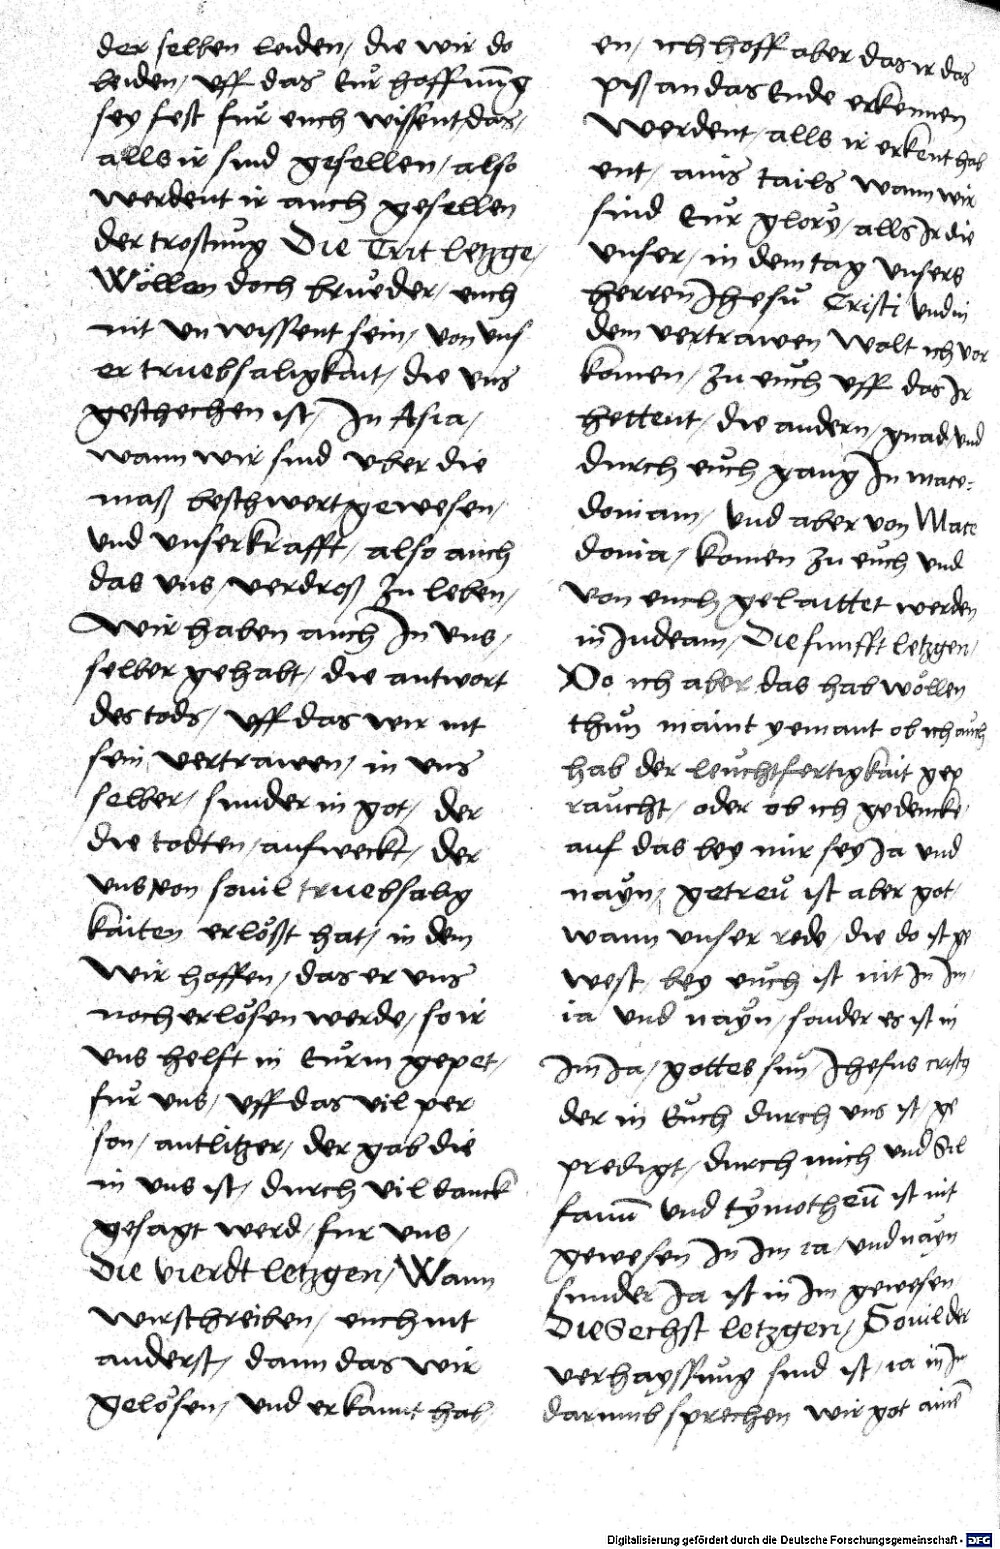 der selben leiden / die wir do
leiden / uff das Eur hoffnung
sey fest fur euch wissent das /
alls ir sind gesellen / also
werdent ir auch gesellen
der trostung Die Trit letzge /
Wöllen doch brueder / euch
nit un wissent sein / von uns
er truebsaligkait / die uns
geschechen ist / In Asia /
wann wir sind uber die
maß beschwert gewesen /
und unser krafft / also auch
das uns / verdroß zu leben /
Wir haben auch In uns /
selber gehabt / die antwort
des tods / uff das wir nit
sein vertrawen / in uns
selber / sunder in got / der
die todten / aufweckt / der
uns von souil truebsalig
kaiten erlößt hat / in dem
Wir hoffen / das er uns
noch erlösen werde / so ir
uns helft in Eurm gepet /
fur uns / uff das vil per
son / antlitzer / der gab die
in uns ist / durch vil danck
gesagt werd / fur uns /
Die vierdt letzgen / Wann
wir schreiben / euch nit
anderst / dann das wir
gelösen / und erkannt hab /
en / ich hoff aber das ir das
piß an das Ende erkennen
Werdent / alls ir erkent hab
ent / ains tails wann wir
sind Eur glory / alls Ir die
unser / in dem tag unsers
herren Ihesu Cristi und in
dem vertrawen Wolt ich vor
komen / zu euch uff das Ir
hettent / die andern / gnad und
durch euch gang In mace=
doniam / und aber von Mace
donia / komen zu euch und
von euch gelaittet werden
in Iudeam / Die funfft letzgen /
Do ich aber das hab wöllen
thun maint yemant ob ich auch
hab der leuchtfertigkait gep
raucht / oder ob ich gedencke
auf das bey mir sey Ia und
nayn / getreu ist aber got /
wann unser rede / die do ist ge
west / bey euch ist nit In Im /
ia und nayn / sonder es ist in
Im Ia / gottes sun / Ihesus cristus
der in Euch durch uns ist / ge
predigt / durch mich und Sil
fanum und tymotheum ist nit
gewesen In Im ia / und nayn
sunder Ia ist in Im gewesen
Die Sechst letzgen / Souil der
verhayssung sind ist / ia in Im
darumb sprechen wir got ainen
Digitalisierung gefördert durch die Deutsche Forschungsgemeinschaft - DFG